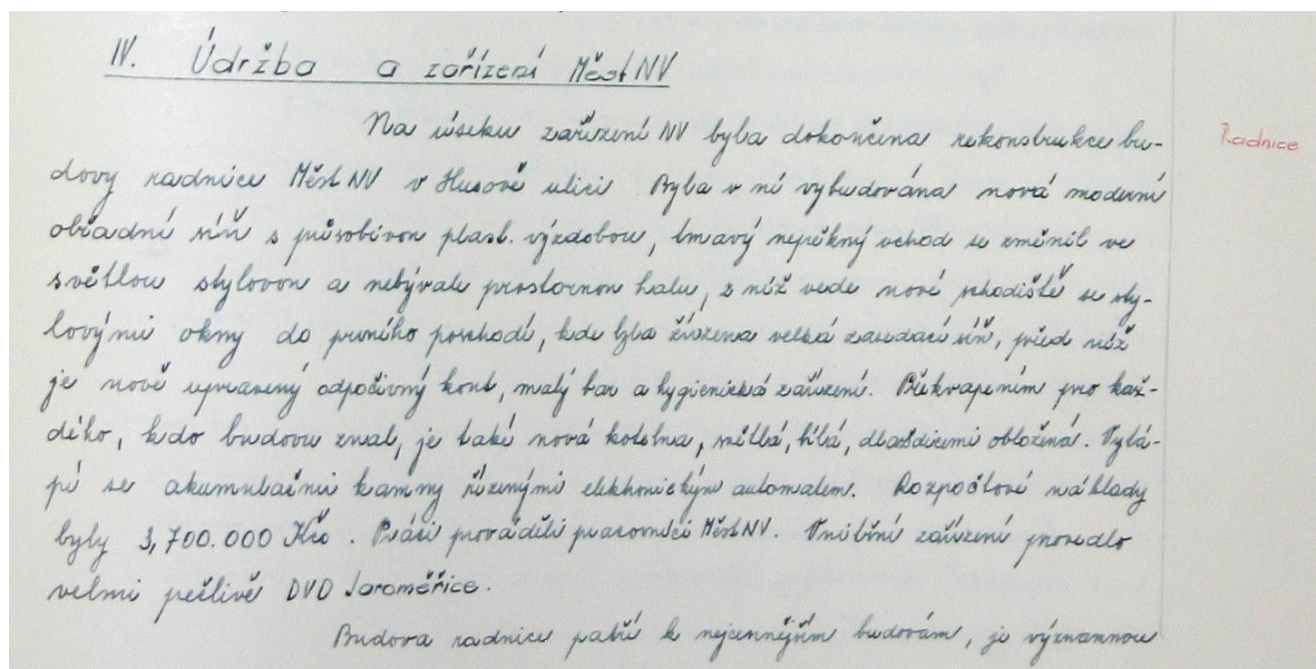 IV. Údržba a zařízení MěstNV
Na úseku zařízení NV byla dokončena rekonstrukce bu-
Radnice
dovy radnice MěstNV v Husově ulici Byla v ní vybudována nová moderní
obřadní síň s působivou plast. výzdobou, tmavý nepěkný vchod se změnil ve
světlou stylovou a nebývale prostornou halu, z níž vede nové schodiště se sty-
lovými okny do prvního poschodí, kde byla zřízena velká zasedací síň, před níž
je nově upravený odpočivný kout, malý bar a hygienická zařízení. Překvapením pro kaž-
dého, kdo budovu znal, je také nová kotelna, světlá, bílá, dlaždicemi obložená. Vytá-
pí se akumulačními kamny řízenými elektronickým automatem. Rozpočtové náklady
byly 3,700.000 Kčs. Práci prováděli pracovníci MěstNV. Vnitřní zařízení provedlo
velmi pečlivě DVD Jaroměřice.
Budova radnice patří k nejcennějším budovám, je významnou